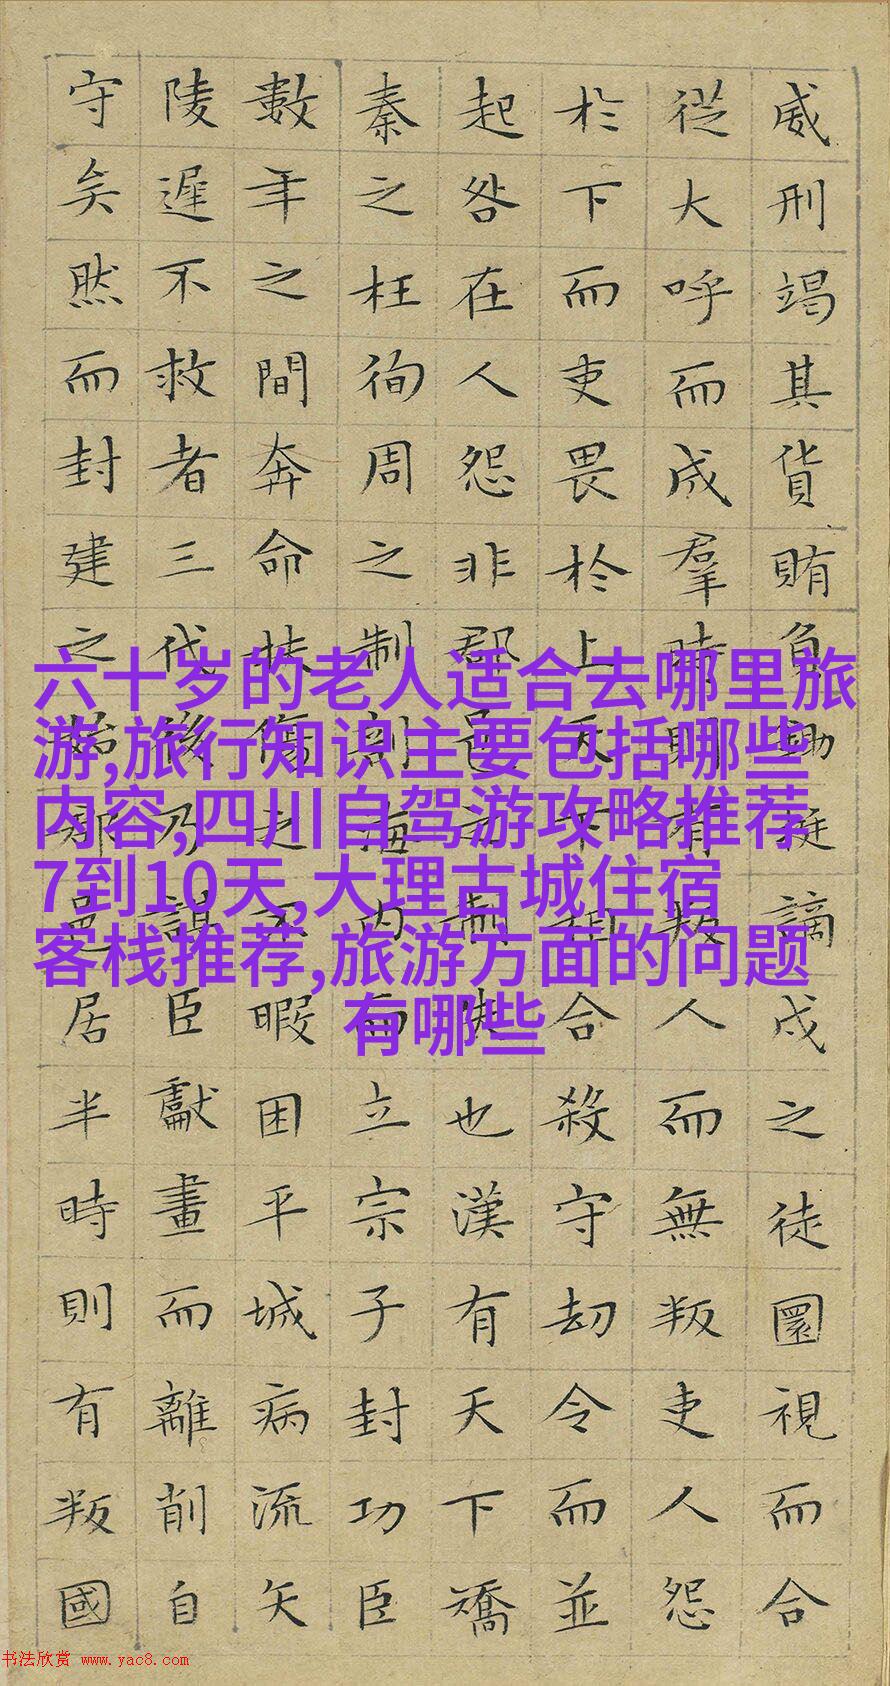 威刑竭其貨賄負鋤梃謫戍之徒圜視而合
從大呼而成羣時則有叛人而無叛吏人怨
於下而吏畏於上天下相合殺守劫令而並
起咎在人怨非郡邑之制失也漢有天下矯
秦之枉徇周之制剖海内而立宗子封功臣
數年之間奔命扶傷之不暇困平城病流矢
陵遲不救者三代後乃謀臣獻畫而離削自
守矣然而封建之始郡邑居半時則有叛國
六十岁的老人适合去哪里旅
游,旅行知识主要包括哪些
内容,四川自驾游攻略推荐
7到10天,大理古城住宿
客栈推荐,旅游方面的问题
有哪些
书法欣赏 www.yac8.com